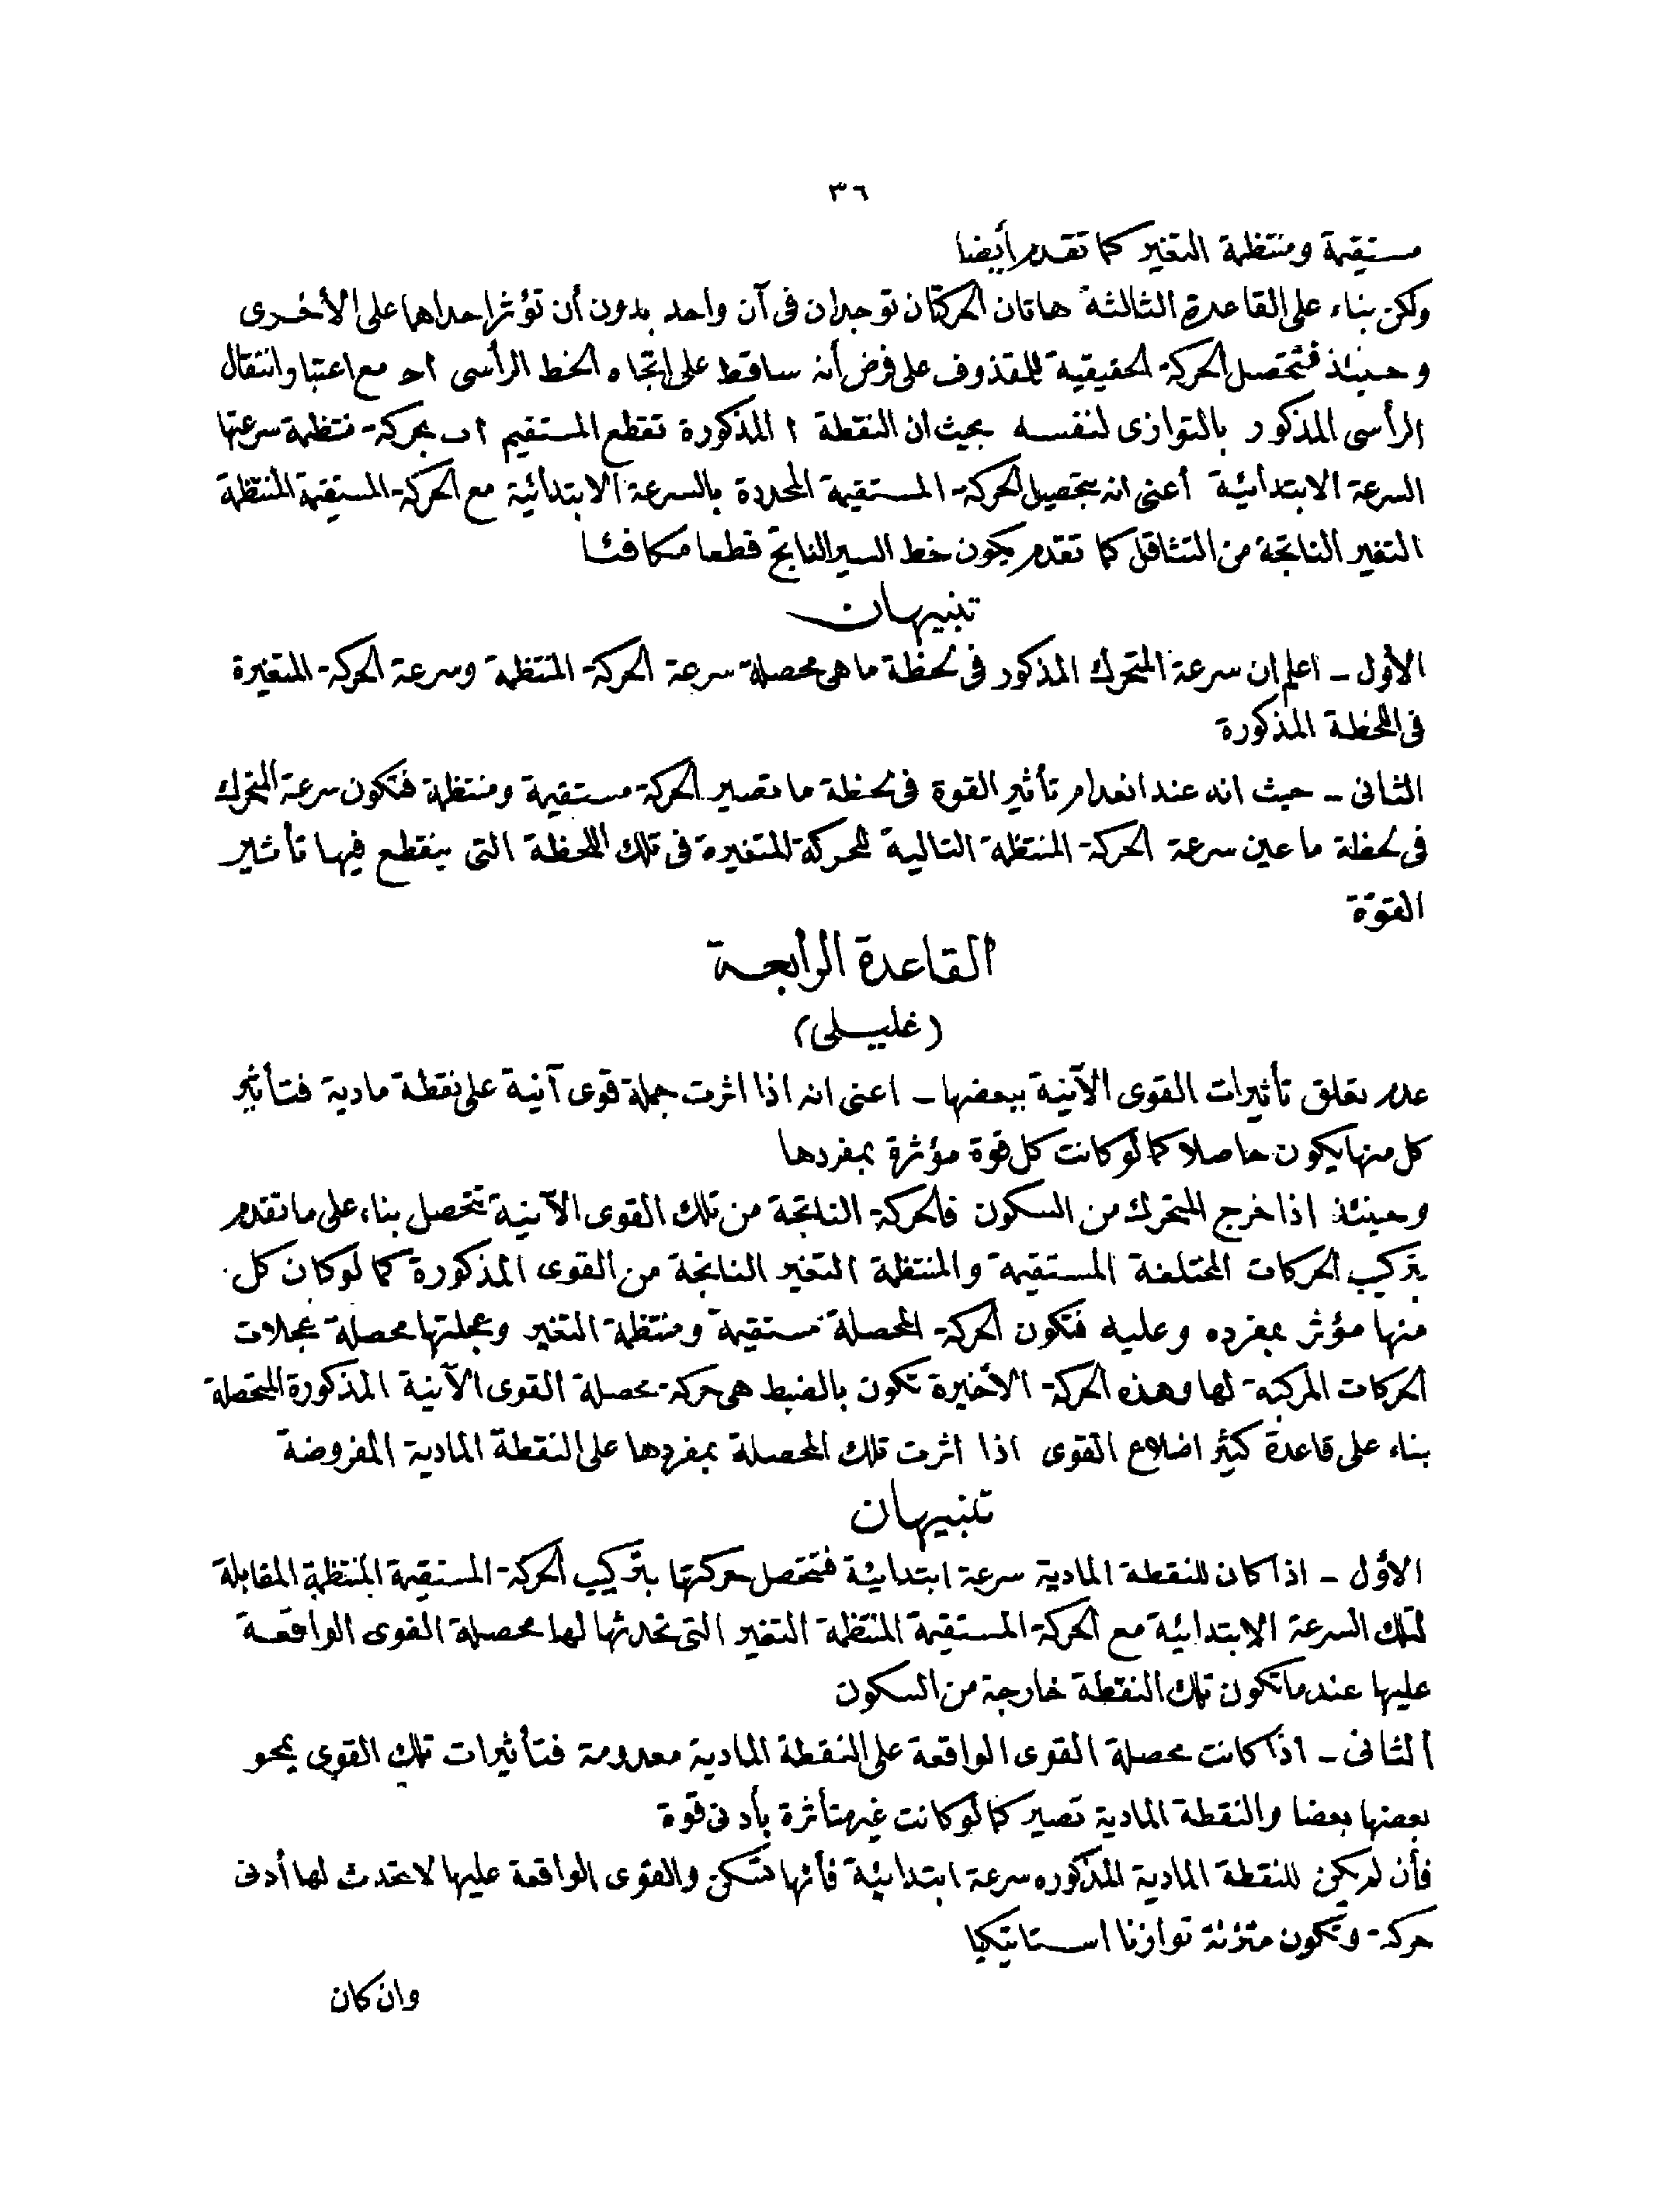 ٣٦
مستقيمة ومنتظمة التغير كما تقدم أيضا
ولكن بناء على القاعدة الثالثة هاتان الحركتان توجدان فى آن واحد بدون أن تؤثر احداها على الأخرى
وحينئذ فتتحصل الحركة الحقيقية للمقذوف على فرض أنه ساقط على اتجاه الخط الرأسى اح مع اعتبار انتقال
الرأسى المذكور بالتوازى لنفسه بحيث ان النقطة ا المذكورة تقطع المستقيم اب بحركة منتظمة سرعتها
السرعة الابتدائية أعنى انه بتحصيل الحركة المستقيمة المحددة بالسرعة الابتدائية مع الحركة المستقيمة المنتظمة
التغير الناتجة من التثاقل كما تقدم يكون خط السير الناتج قطعا مكافئا
تنبيهان
الأول - اعلم ان سرعة المتحرك المذكور فى لحظة ما هى محصلة سرعة الحركة المنتظمة وسرعة الحركة المتغيرة
فى اللحظة المذكورة
الثانى - حيث انه عند انعدام تأثير القوة فى لحظة ما تصير الحركة مستقيمة ومنتظمة فتكون سرعة المتحرك
فى لحظة ما عين سرعة الحركة المنتظمة التالية للحركة المتغيرة فى تلك اللحظة التى ينقطع فيها تأثير
القوّة
القاعدة الرابعة
(غليلى)
عدم تعلق تأثيرات القوى الآنية ببعضها - اعنى انه اذا اثرت جملة قوى آنية على نقطة مادية فتأثير
كل منها يكون حاصلا كما لو كانت كل قوة مؤثرة بمفردها
وحينئذ اذا خرج المتحرك من السكون فالحركة الناتجة من تلك القوى الآنية تتحصل بناء على ما تقدم
بتركيب الحركات المختلفة المستقيمة والمنتظمة التغير الناتجة من القوى المذكورة كما لو كان كل
منها مؤثر بمفرده وعليه فتكون الحركة المحصلة مستقيمة ومنتظمة التغير وعجلتها محصلة عجلات
الحركات المركبة لها وهذه الحركة الأخيرة تكون بالضبط هى حركة محصلة القوى الآنية المذكورة المتحصلة
بناء على قاعدة كثير اضلاع القوى اذا اثرت تلك المحصلة بمفردها على النقطة المادية المفروضة
تنبيهان
الأول - اذا كان للنقطة المادية سرعة ابتدائية فتتحصل حركتها بتركيب الحركة المستقيمة المنتظمة المقابلة
لتلك السرعة الابتدائية مع الحركة المستقيمة المنتظمة التغير التى تحدثها لها محصلة القوى الواقعة
عليها عندما تكون تلك النقطة خارجة من السكون
الثانى - اذا كانت محصلة القوى الواقعة على النقطة المادية معدومة فتأثيرات تلك القوى يمحو
بعضها بعضا والنقطة المادية تصير كما لو كانت غير متأثرة بأدنى قوة
فأن لم يكن للنقطة المادية المذكوره سرعة ابتدائية فأنها تسكن والقوى الواقعة عليها لا تحدث لها أدنى
حركة وتكون متزنة توازنا استاتيكيا
وان كان